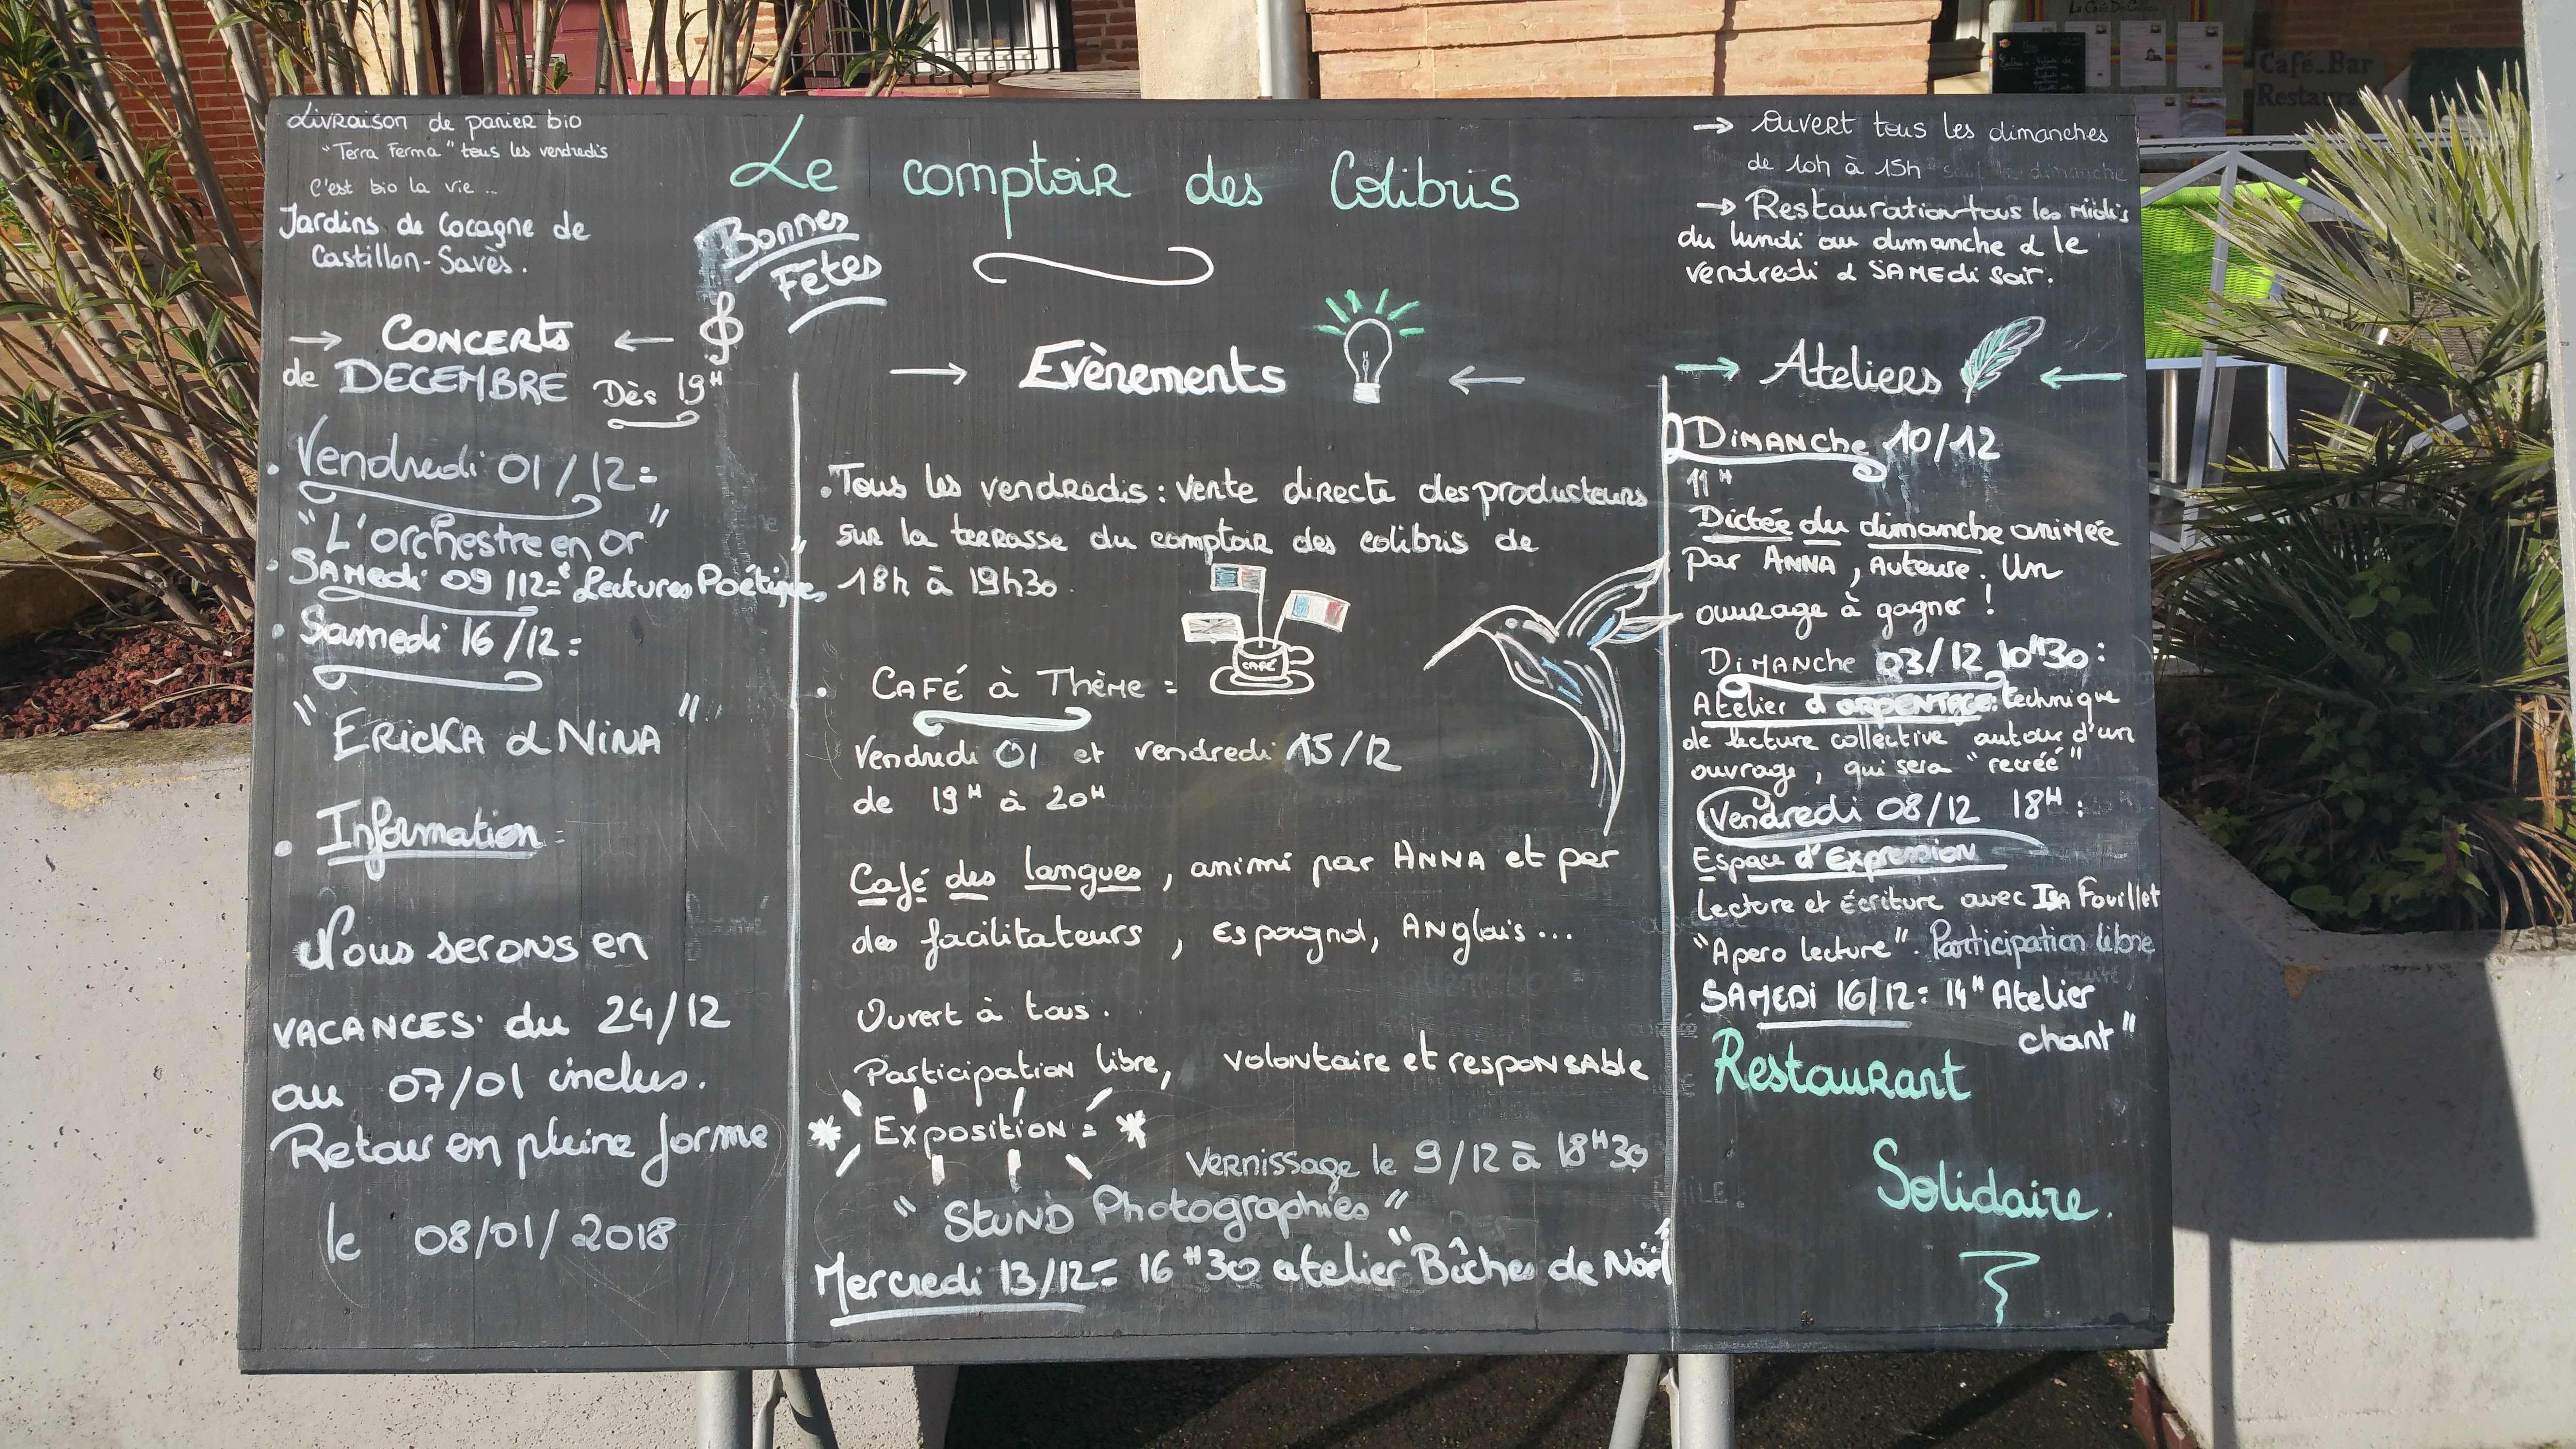 Le comptoir des Colibris
Livraison de panier bio
"Terra Ferma" tous les vendredis
C'est bio la vie ...
Jardins de Cocagne de
Castillon-Savès.
Bonnes
Fêtes
→ Ouvert tous les dimanches
de 10h à 15h
→ Restauration tous les midis
du lundi au dimanche & le
vendredi & SAMEdi soir.
→ CONCERTS ←
de DECEMBRE Dès 19H
. Vendredi 01/12 =
"L'orchestre en or"
. SAMedi 09/12 = Lectures Poétiques
. Samedi 16/12 =
"ERICKA & NINA"
. Information =
Nous serons en
VACANCES du 24/12
au 07/01 inclus.
Retour en pleine forme
le 08/01/2018
→ Evènements ←
. Tous les vendredis : vente directe des producteurs
sur la terrasse du comptoir des colibris de
18h à 19h30
CAFÉ
. CAFÉ à Thème =
Vendredi 01 et vendredi 15/12
de 19H à 20H
Café des langues, animé par ANNA et par
des facilitateurs, Espagnol, ANglais...
Ouvert à tous.
Participation libre, volontaire et responsable
* Exposition = *
Vernissage le 9/12 à 18H30
"StuND Photographies"
Mercredi 13/12 = 16H30 atelier "Bûches de Noël"
→ Ateliers ←
DIMANche 10/12
11H
Dictée du dimanche animée
par ANNA, auteure. Un
ouvrage à gagner !
DiMANche 03/12 10H30 :
Atelier d'ARPENTAGE : technique
de lecture collective autour d'un
ouvrage, qui sera "recréé"
Vendredi 08/12 18H :
Espace d'Expression
Lecture et écriture avec ISA Fouillet
"Apero lecture". Participation libre
SAMEDI 16/12 = 14H Atelier
chant"
Restaurant
Solidaire.
Café_Bar
Restaura